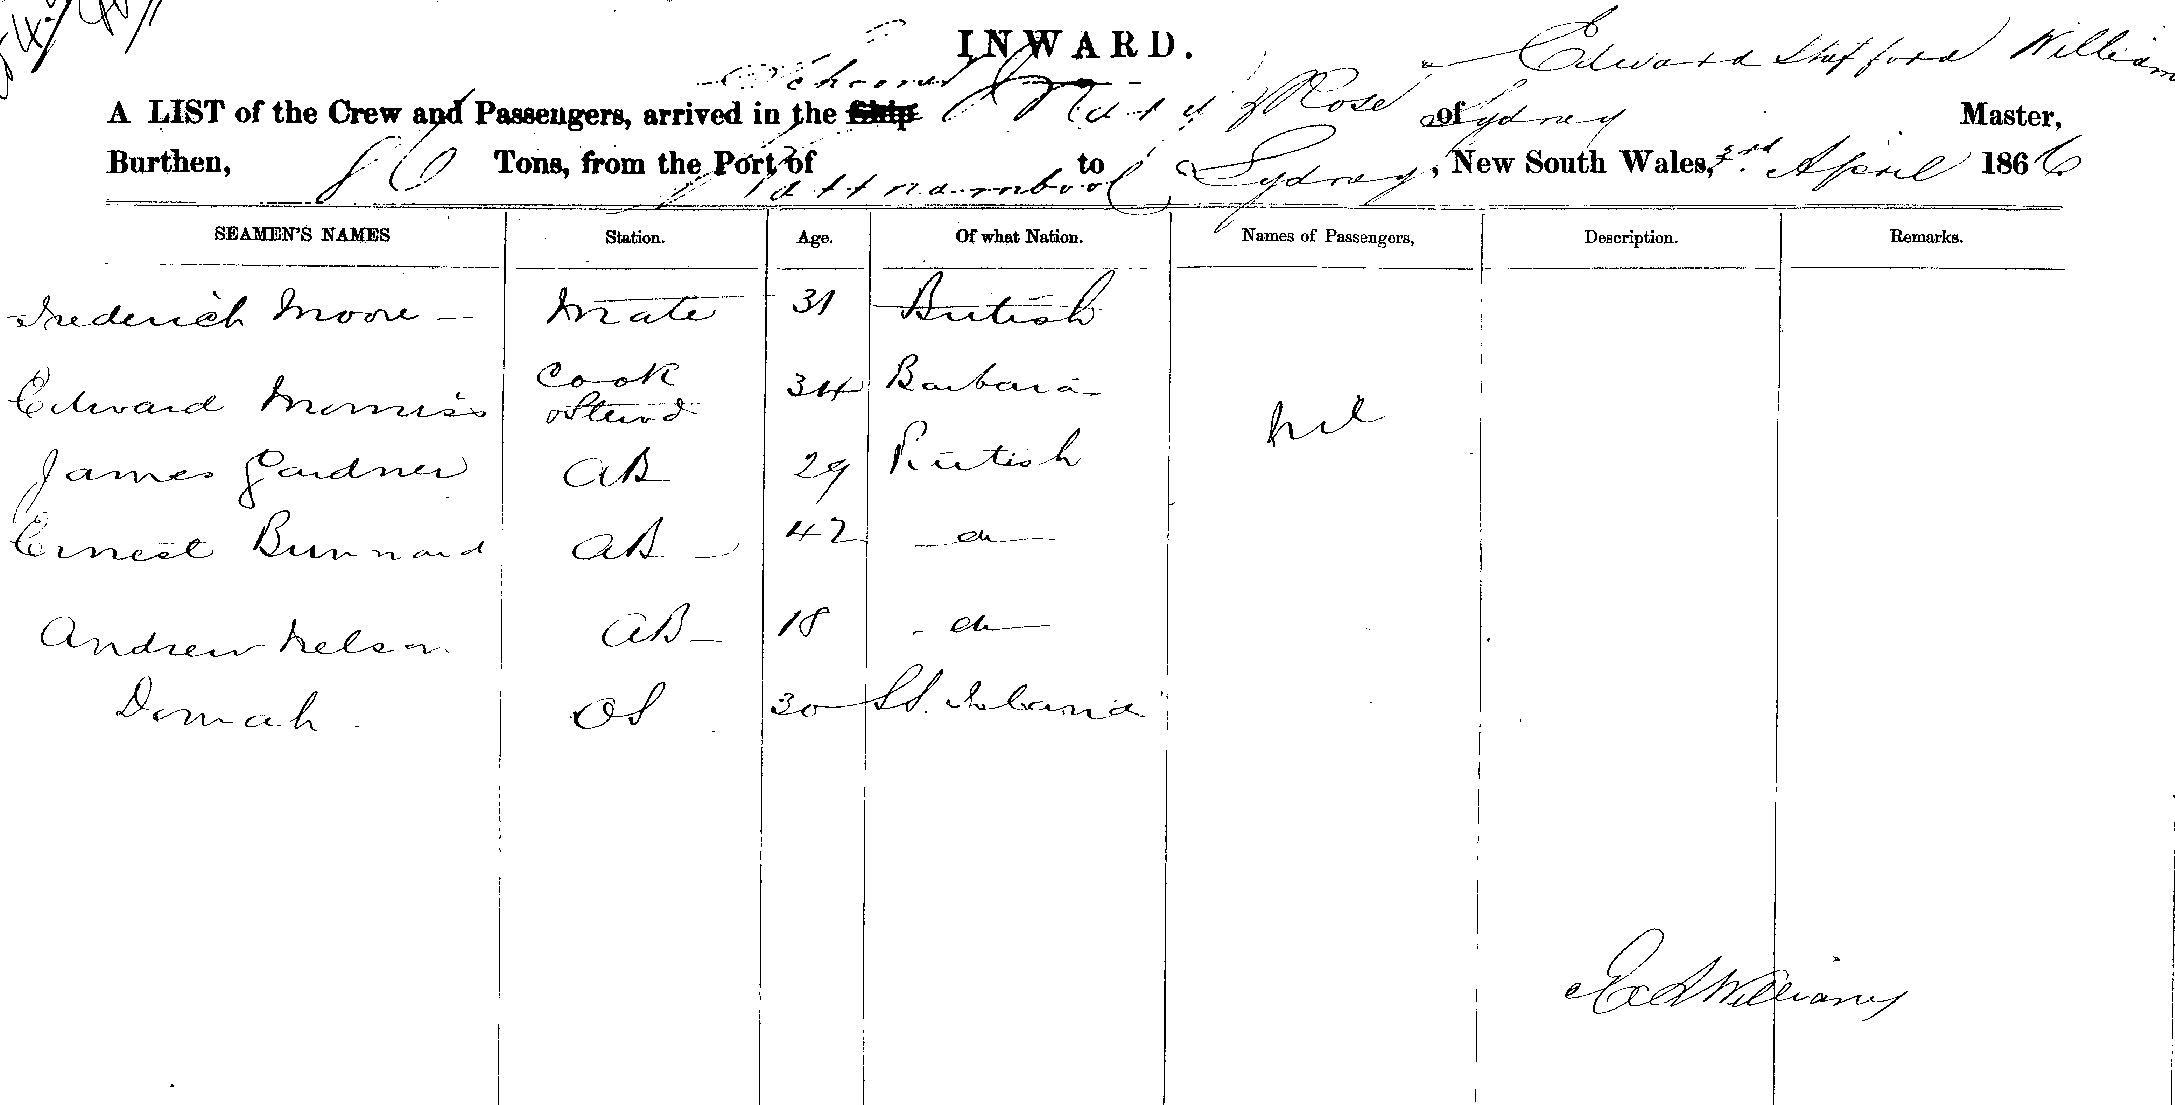 INWARD.
Edward Stafford William
Schooner
A LIST of the Crew and Passengers, arrived in the Ship Rose of Sydney Master,
Burthen, 86 Tons, from the Port of Warrnambool to Sydney, New South Wales, 3rd April 1866
SEAMEN'S NAMES Station. Age. Of what Nation. Names of Passengers, Description. Remarks.
Frederich Moore Mate 31 British
Edward Morriss Cook & Stewd 34 Barbara
nil
James Gardner AB 29 British
Ernest Bunnard AB 42 do
Andrew Nelson AB 18 do
Domah OS 30 SS. Island
Ed Williams